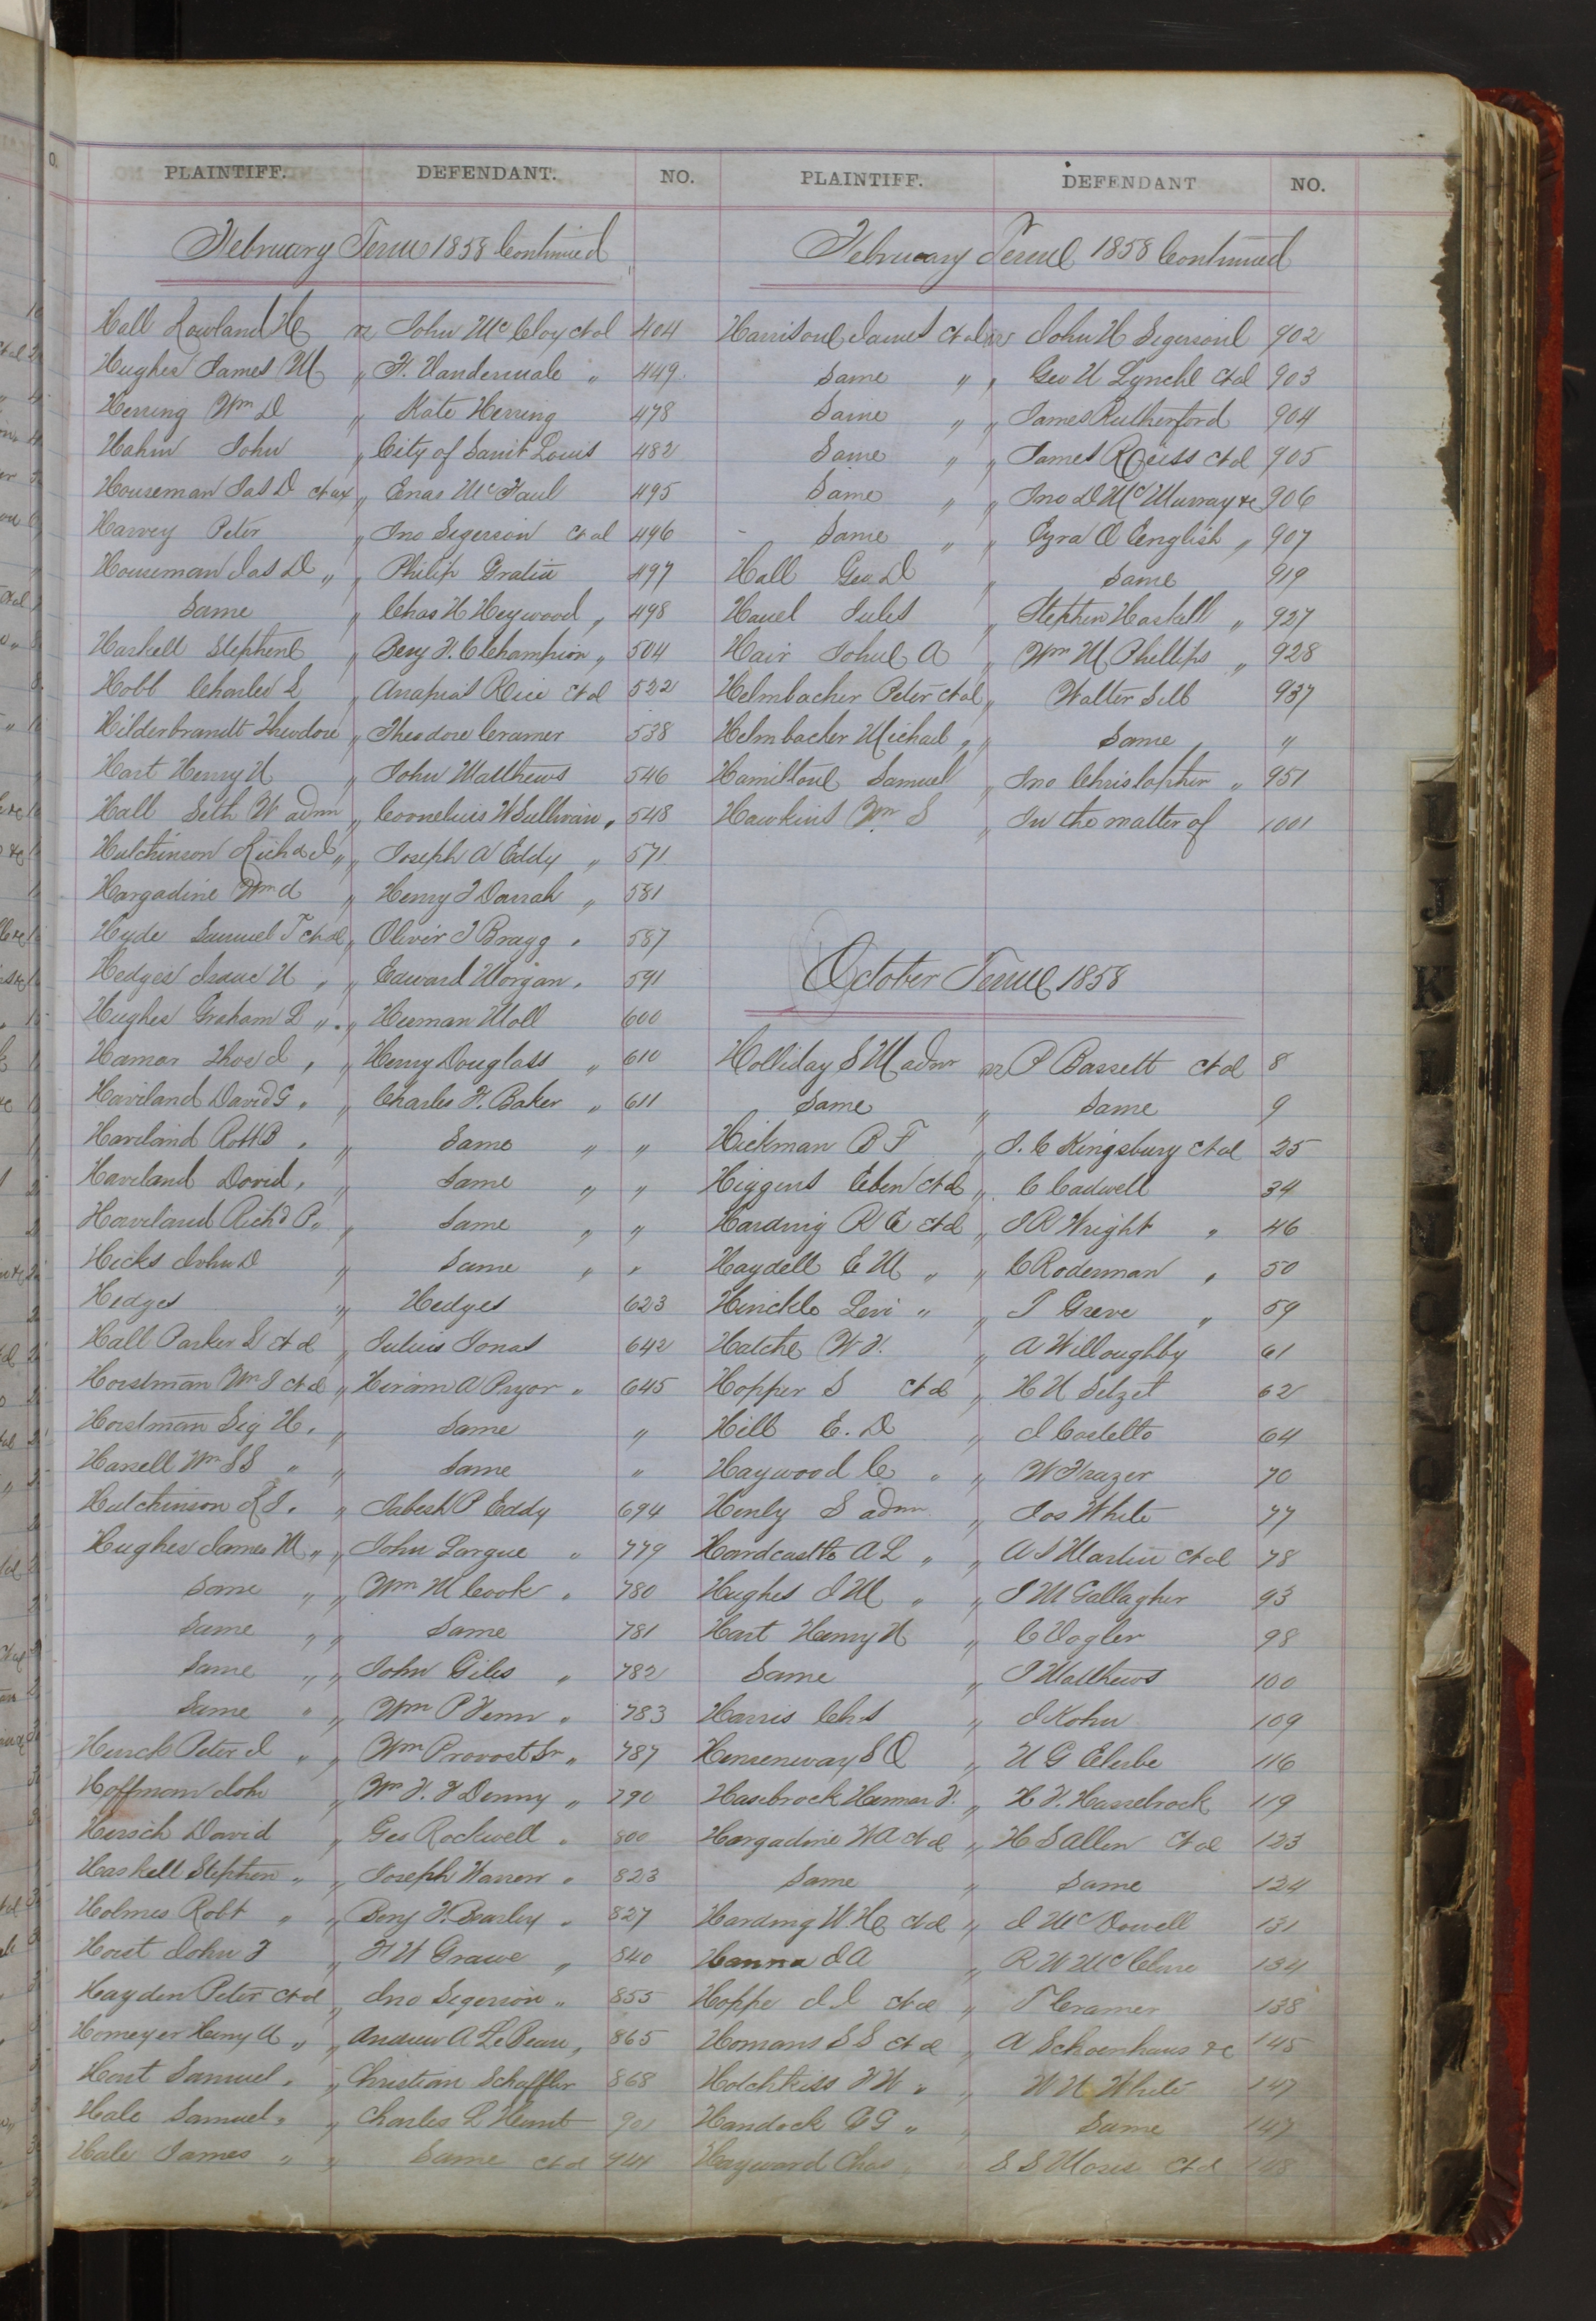 PLAINTIFF. DEFENDANT. NO.
February Term 1858 Continued
Hall Rowland H vs John McCloy et al 404
Hughes James M " F. Vandermale " 449
Herring Wm D " Kate Herring 478
Hahn John " City of Saint Louis 482
Houseman Jas D et ux " Enas McFaul 495
Harvey Peter " Jno Segerson et al 496
Houseman Jas D " " Philip Gratiu 497
Same " Chas H Heywood " 498
Haskell Stephen " Benj F. C Champion " 504
Hobb Charles L " Anapias Rice et al 522
Hilderbrandt Theodore " Theodore Cramer 538
Hart Henry N " John Matthews 546
Hall Seth W admr " Corneluis W Sullivan " 548
Hutchinson Rich d " " Joseph A Eddy " 571
Hargadine Wm A " Henry J Darrah " 581
Hyde Samuel T et al " Oliver J Bragg " 587
Hedges Isaac N " " Edward Morgan " 591
Hughes Graham L " " Herman Moll 600
Hamar Thos J " " Henry Douglass " 610
Haviland David G " " Charles F. Baker " 611
Haviland Robt B " " Same " "
Haviland David " " Same " "
Haviland Richd P " " Same " "
Hicks John D " Same " "
Hedges " Hedges 623
Hall Parker L et al " Julius Jonas 642
Horstman Wm J et al " Hiram A Pryor " 645
Horstman Sig H " " Same "
Hassell Wm S S " " Same "
Hutchinson R J " " Jabesh P Eddy 694
Hughes James M " " John Largue " 779
Same " " Wm M Cook " 780
Same " " Same 781
Same " " John Giles " 782
Same " " Wm P Fenn " 783
Hurck Peter J " " Wm Provost Sr " 787
Hoffman John " Wm F. F Denny " 790
Hirsch David " Geo Rockwell " 800
Haskell Stephen " " Joseph Warren " 823
Holmes Robt " " Benj F. Beasley " 827
Horst John F " F W Grawe " 840
Hayden Peter et al " Jno Segerson " 855
Homeyer Henry A " " Andrew A LeBeau " 865
Hort Samuel " " Christian Schaffler 868
Hale Samuel " " Charles L Hunt
Hale James " " Same et al
PLAINTIFF. DEFENDANT NO.
February Term 1858 Continued
Harrison James et al vs John H Segerson 902
Same " " Geo W Lynch et al 903
Same " " James Rutherford 904
Same " " James Reiss et al 905
Same " " Jno D McMurray &c 906
Same " " Ezra O English " 907
Hall Geo D " Same 919
Hauel Jules " Stephen Haskell " 927
Hair John A " Wm M Phillips " 928
Helmbacher Peter et al " Walter Sell 937
Helmbacher Michael " " Same " "
Hamilton Samuel " Jno Christopher " 951
Hawkins Wm S " In the matter of 1001
October Term 1858
Holliday S M admr vs P Bassett et al 8
Same " Same 9
Hickman B F " J. C Kingsbury et al 25
Higgins Eben et al " C Cadwell 34
Harding R C et al " J R Wright " 46
Haydell E M " " C Roderman " 50
Hinckle Levi " " T Greve " 59
Hatch W F. " A Willoughby 61
Hopper S et al " H N Selzet 62
Hill E. D " J Costello 64
Haywood C " " W Frazer 70
Henly S admr " Jos White 77
Hardcastle A L " " A J Martin et al 78
Hughes J M " " J M Gallagher 93
Hart Henry N " C Vogler 98
Same " J Matthews 100
Harris Chs " J Kohn 109
Hensenway S D " N G Elerbe 116
Hasebrock Herman F. " H F. Hassebrock 119
Hargadine W A et al " H S Allen et al 123
Same " Same 124
Harding W H et al " J McDowell 131
Hanna J A " R W McClure 134
Hoppe J J et al " T Cramer 138
Homans S S et al " A Schoenhaus &c 145
Hotchkiss F W " " W N White 147
Handock C G " " Same 147
Hayward Chas S S Moses et al 148
I
J
K